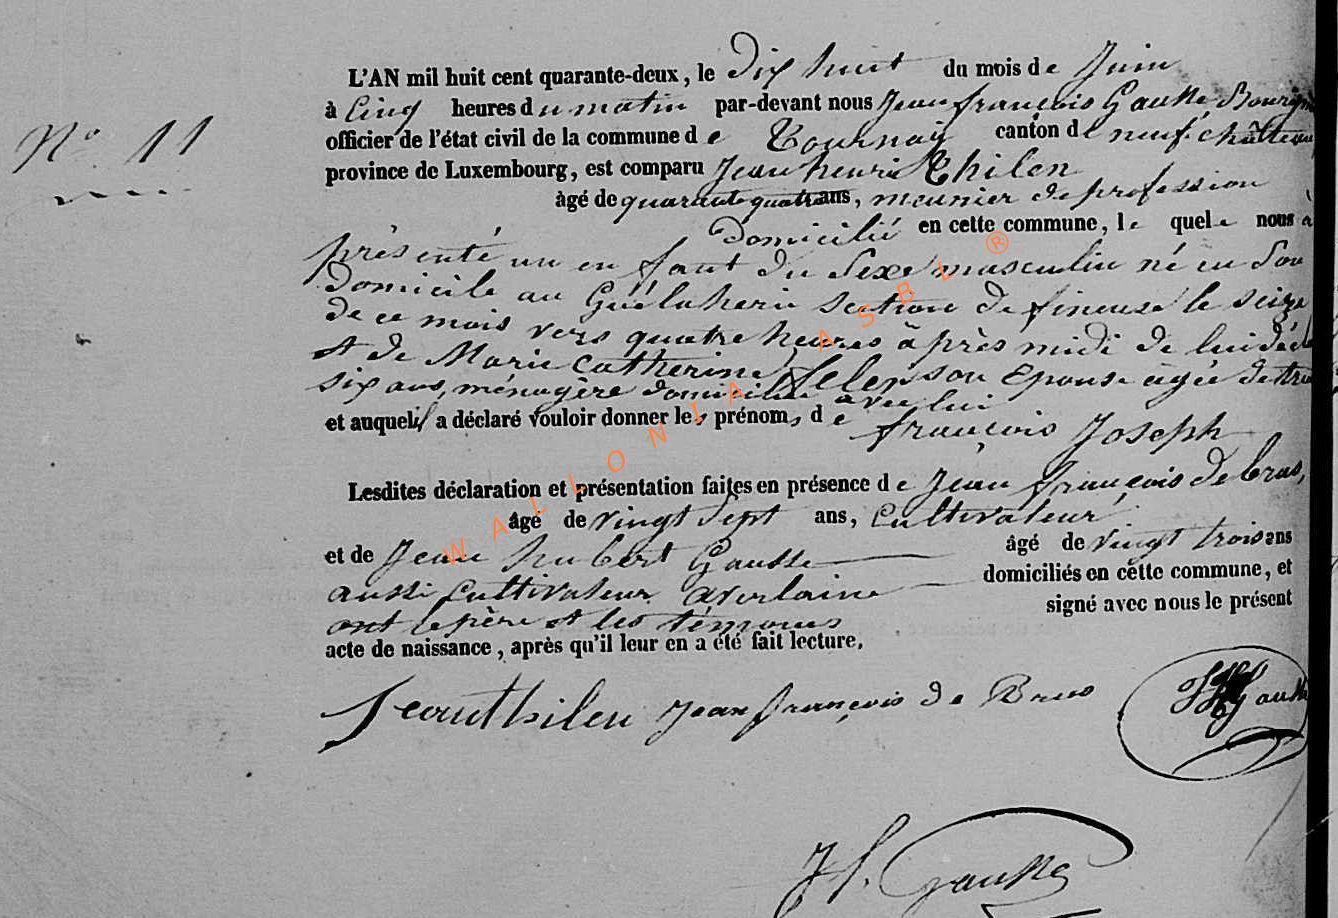 N° 11
L'AN mil huit cent quarante-deux, le Dix huit du mois de Juin
à Cinq heures du matin par-devant nous Jean françois Gausse Bourgm
officier de l'état civil de la commune de Tournay canton de neufchâteau
province de Luxembourg, est comparu Jean henri Thilen
âgé de quarante quatre ans, meunier de profession
Domicilié en cette commune, le quel nous à
présenté un enfant du Sexe masculin né en Son
Domicile au section de fineuse le seize
de ce mois vers quatre heures après midi de lui décl
et de Marie Catherine son Epouse agée de tren
six ans, ménagère domiciliée avec lui
et auquel il a déclaré vouloir donner les prénoms de
françois Joseph
Lesdites déclaration et présentation faites en présence de Jean françois de bras,
âgé de vingt Sept ans, Cultivateur
et de Jean hubert Gausse âgé de vingt trois ans
aussi Cultivateur a verlaine domiciliés en cette commune, et
ont le père et les témoins signé avec nous le présent
acte de naissance, après qu'il leur en a été fait lecture.
Jeanthilen Jean françois de Bras JH Gausse
Jf. Gausse
WALLONIA ASBL ®